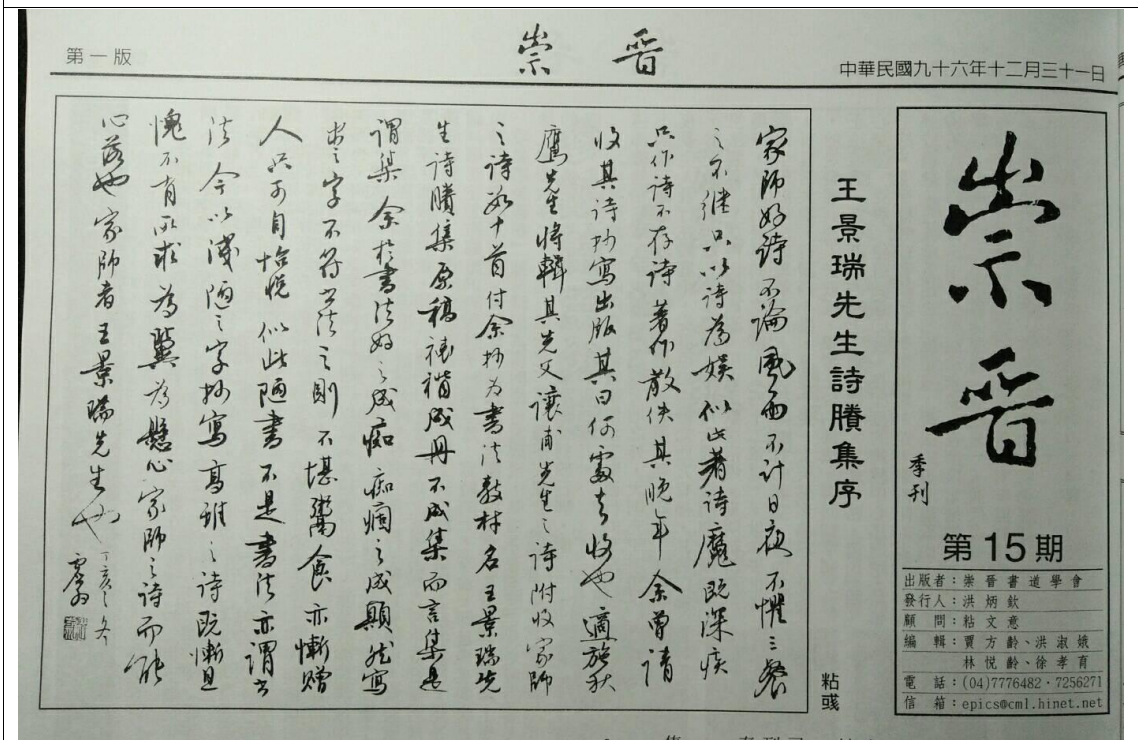 第一版
崇晉
中華民國九十六年十二月三十一日
崇晉
季刊
第15期
出版者：崇晉書道學會
發行人：洪炳欽
顧　問：粘文意
編　輯：賈方齡、洪淑娥
林悅齡、徐孝育
電　話：(04)7776482・7256271
信　箱：epics@cml.hinet.net
王景瑞先生詩賸集序
粘彧
家師好詩不論風雨不計日夜不懼三餐
之不繼只以詩為娛似此著詩魔既深疾
只作詩不存詩著作散佚其晚年余曾請
收其詩抄寫出版其曰何處去收也適施秋
鷹先生將輯其先父讓甫先生之詩附收家師
之詩數十首付余抄為書法教材名王景瑞先
生詩賸集原稿裱褙成冊不成集而言集是
謂集余於書法好之成痴痴痼之成顛然寫
出之字不符書法之則不堪鬻食亦慚贈
人只可自怡悅似此陋書不是書法亦謂書
法今以淺陋之字抄寫高雅之詩既慚且
愧不有所求為冀為懸心家師之詩而能
心落也家師者王景瑞先生也
丁亥之冬